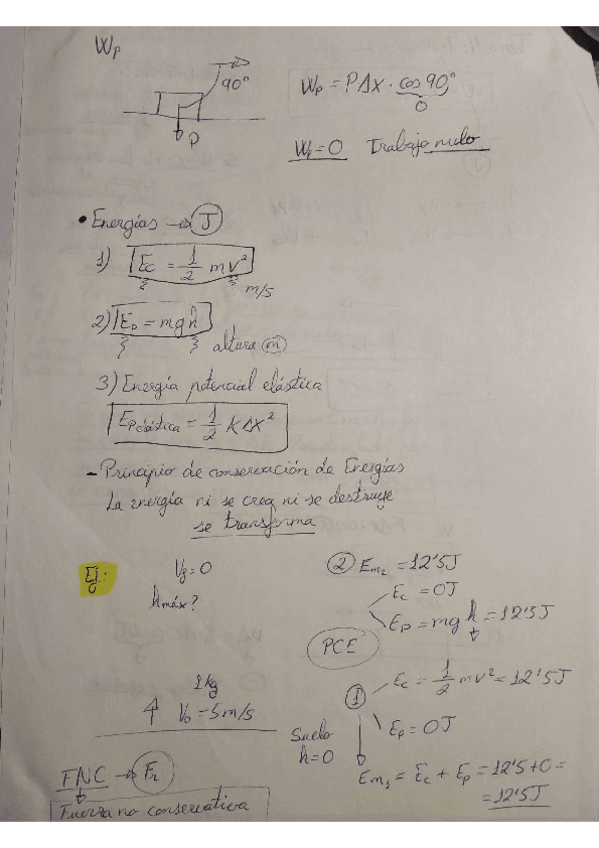 Wp
90°
P
Wp = PΔx · cos 90°
0
Wp = 0 Trabajo nulo
• Energías → J
1) Ec = 1/2 mv²
m/s
2) Ep = mgh
altura (m)
3) Energía potencial elástica
Epelástica = 1/2 KΔx²
- Principio de conservación de Energías
La energía ni se crea ni se destruye
se transforma
Ej:
Vf = 0
hmáx?
1 kg
↑ Vo = 5 m/s
Suelo
h = 0
② Em₂ = 12'5J
Ec = 0J
Ep = mgh = 12'5J
PCE
①
Ec = 1/2 mv² = 12'5J
Ep = 0J
Em₁ = Ec + Ep = 12'5 + 0 =
= 12'5J
FNC → Fr
Fuerza no conservativa